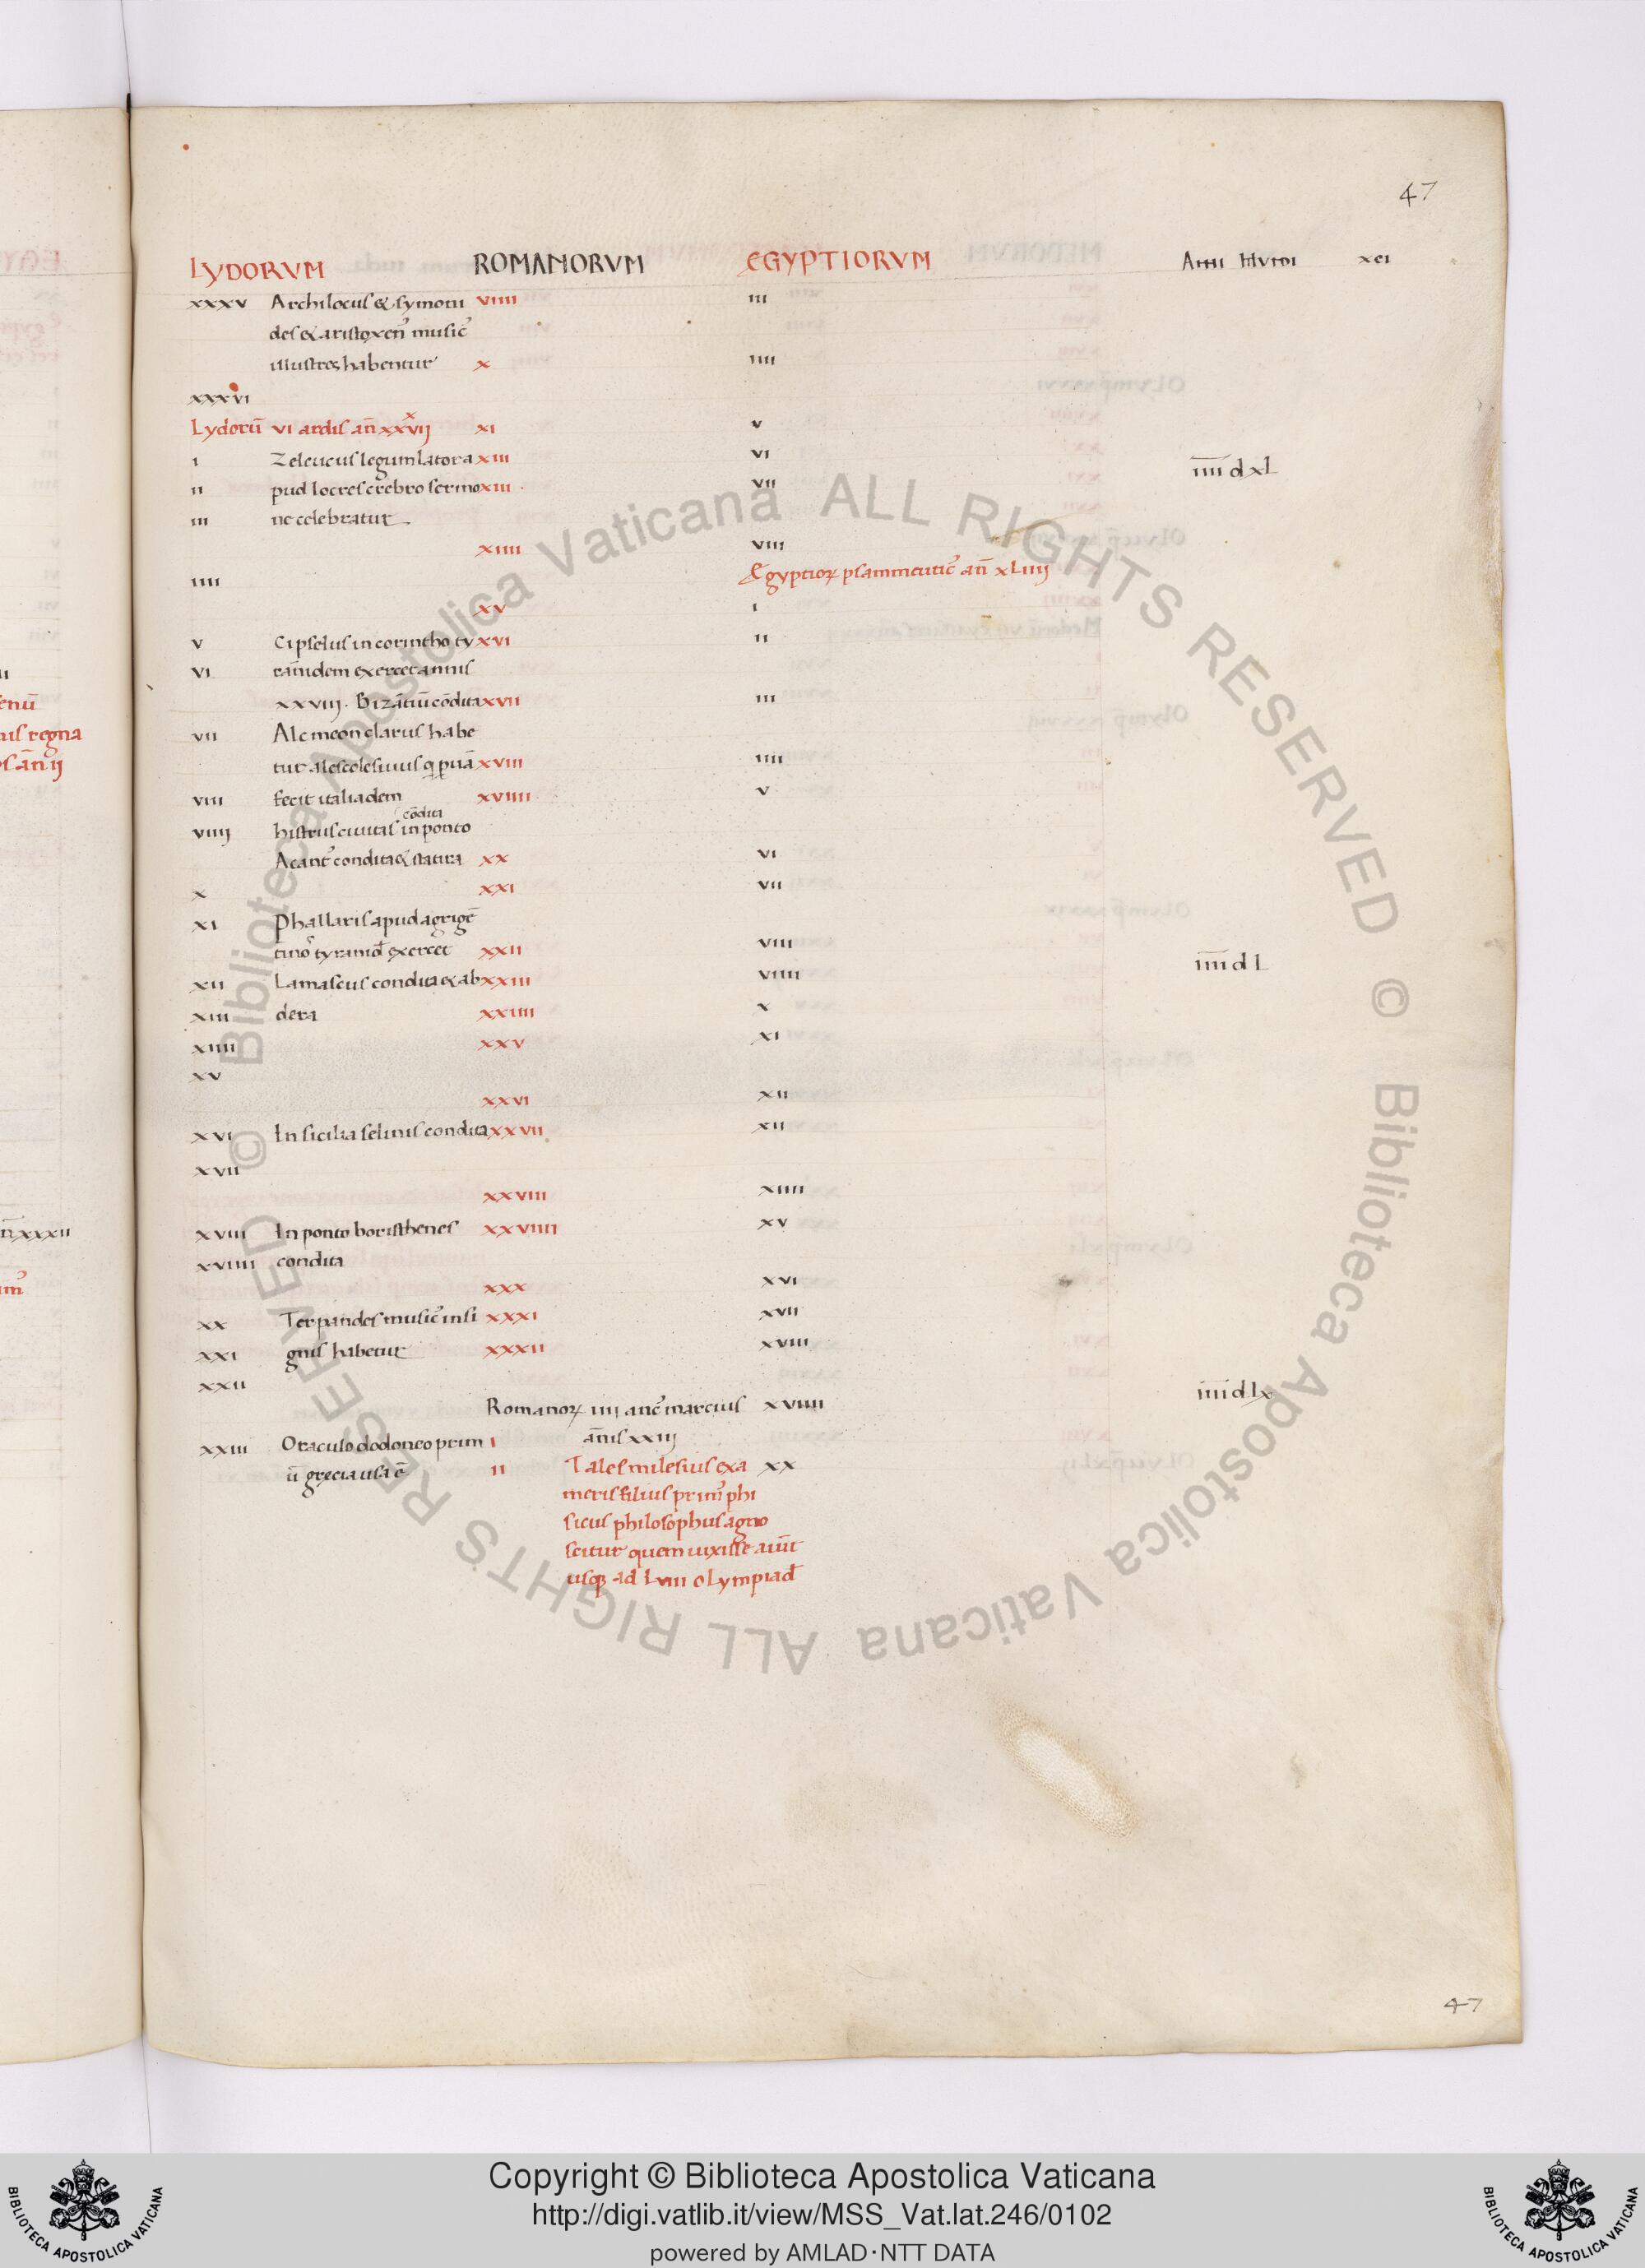 47
LYDORVM ROMANORVM EGYPTIORVM Anni Mundi xci
xxxv Archilocus & symoni viiii iii
des & aristoxen᾿ music᾿
illustres habentur x iiii
xxxvi
Lydorū vi ardis an̄ xxxvij xi v
i Zeleucus legum lator a xiii vi
ii pud locres crebro sermo xiii vii
iii ne celebratur
xiiii viii
iiii Egyptioꝝ psammeutic᾿ an̄ xLiiij
xv i
v Cipselus in corintho ty xvi ii
vi rānidem exercet annis
xxviij. Bizātiū cōdita xvii iii
vii Alcmeon clarus habe
tur xviii iiii
viii fecit italiadem xviiii v
viiij histrus ciuitas in ponto cōdita
Acant᾿ condita & statira xx vi
x xxi vii
xi Phallaris apud agrigē
tinos tyranid̄ exercet xxii viii
xii Lamascus condita & ab xxiii viiii
xiii dera xxiiii x
xiiii xxv xi
xv
xxvi xii
xvi In sicilia selinis condita xxvii xii
xvii
xxviii xiiii
xviii In ponto boristhenes xxviiii xv
xviiii condita
xxx xvi
xx Terpandes music᾿ insi xxxi xvii
xxi gnis habetur xxxii xviii
xxii
Romanoꝝ iiij anc᾿ marcius xviiii
xxiii Oraculo dodoneo prim i ānis xxiij
ū grecia usa ē ii Tales milesius exa xx
meris filius prim᾿ phi
sicus philosophus agno
scitur quem uixisse aiūt
usqꝫ ad Lviii oLympiad̄
īīīī d xL
īīīī d L
īīīī d Lx
enū
us regna
s ān ij
n̄ xxxii
im᾿
47
© Biblioteca Apostolica Vaticana ALL RIGHTS RESERVED © Biblioteca Apostolica Vaticana ALL RIGHTS RESERVED
Copyright © Biblioteca Apostolica Vaticana
http://digi.vatlib.it/view/MSS_Vat.lat.246/0102
powered by AMLAD·NTT DATA
BIBLIOTECA APOSTOLICA VATICANA
BIBLIOTECA APOSTOLICA VATICANA